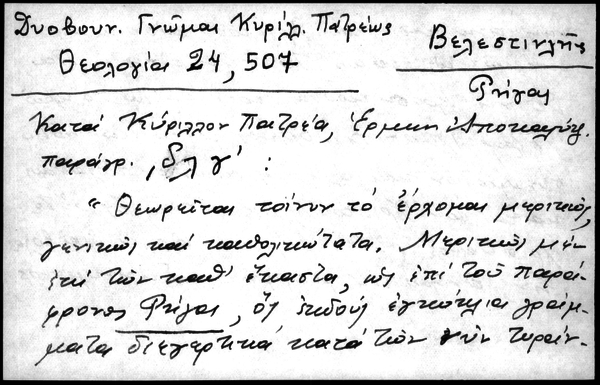 Δυοβουν. Γνῶμαι Κυρίλ. Πατρέως
Βελεστινλῆς
Θεολογία 24, 507
Ρήγας
Κατά Κύριλλον Πατρέα, Ἑρμην. Ἀποκαλύψ.
παράγρ.
" Θεωρεῖται τοίνυν τό ἔρχομαι μερικῶς,
γενικῶς καί καθολικώτατα. Μερικῶς μέν
ἐπί τῶν καθ' ἕκαστα, ὡς ἐπί τοῦ παρά-
φρονος Ρήγας, ὅς ἐκδούς ἐγκύκλια γράμ-
ματα διεγερτικά κατά τῶν νῦν τυράν-